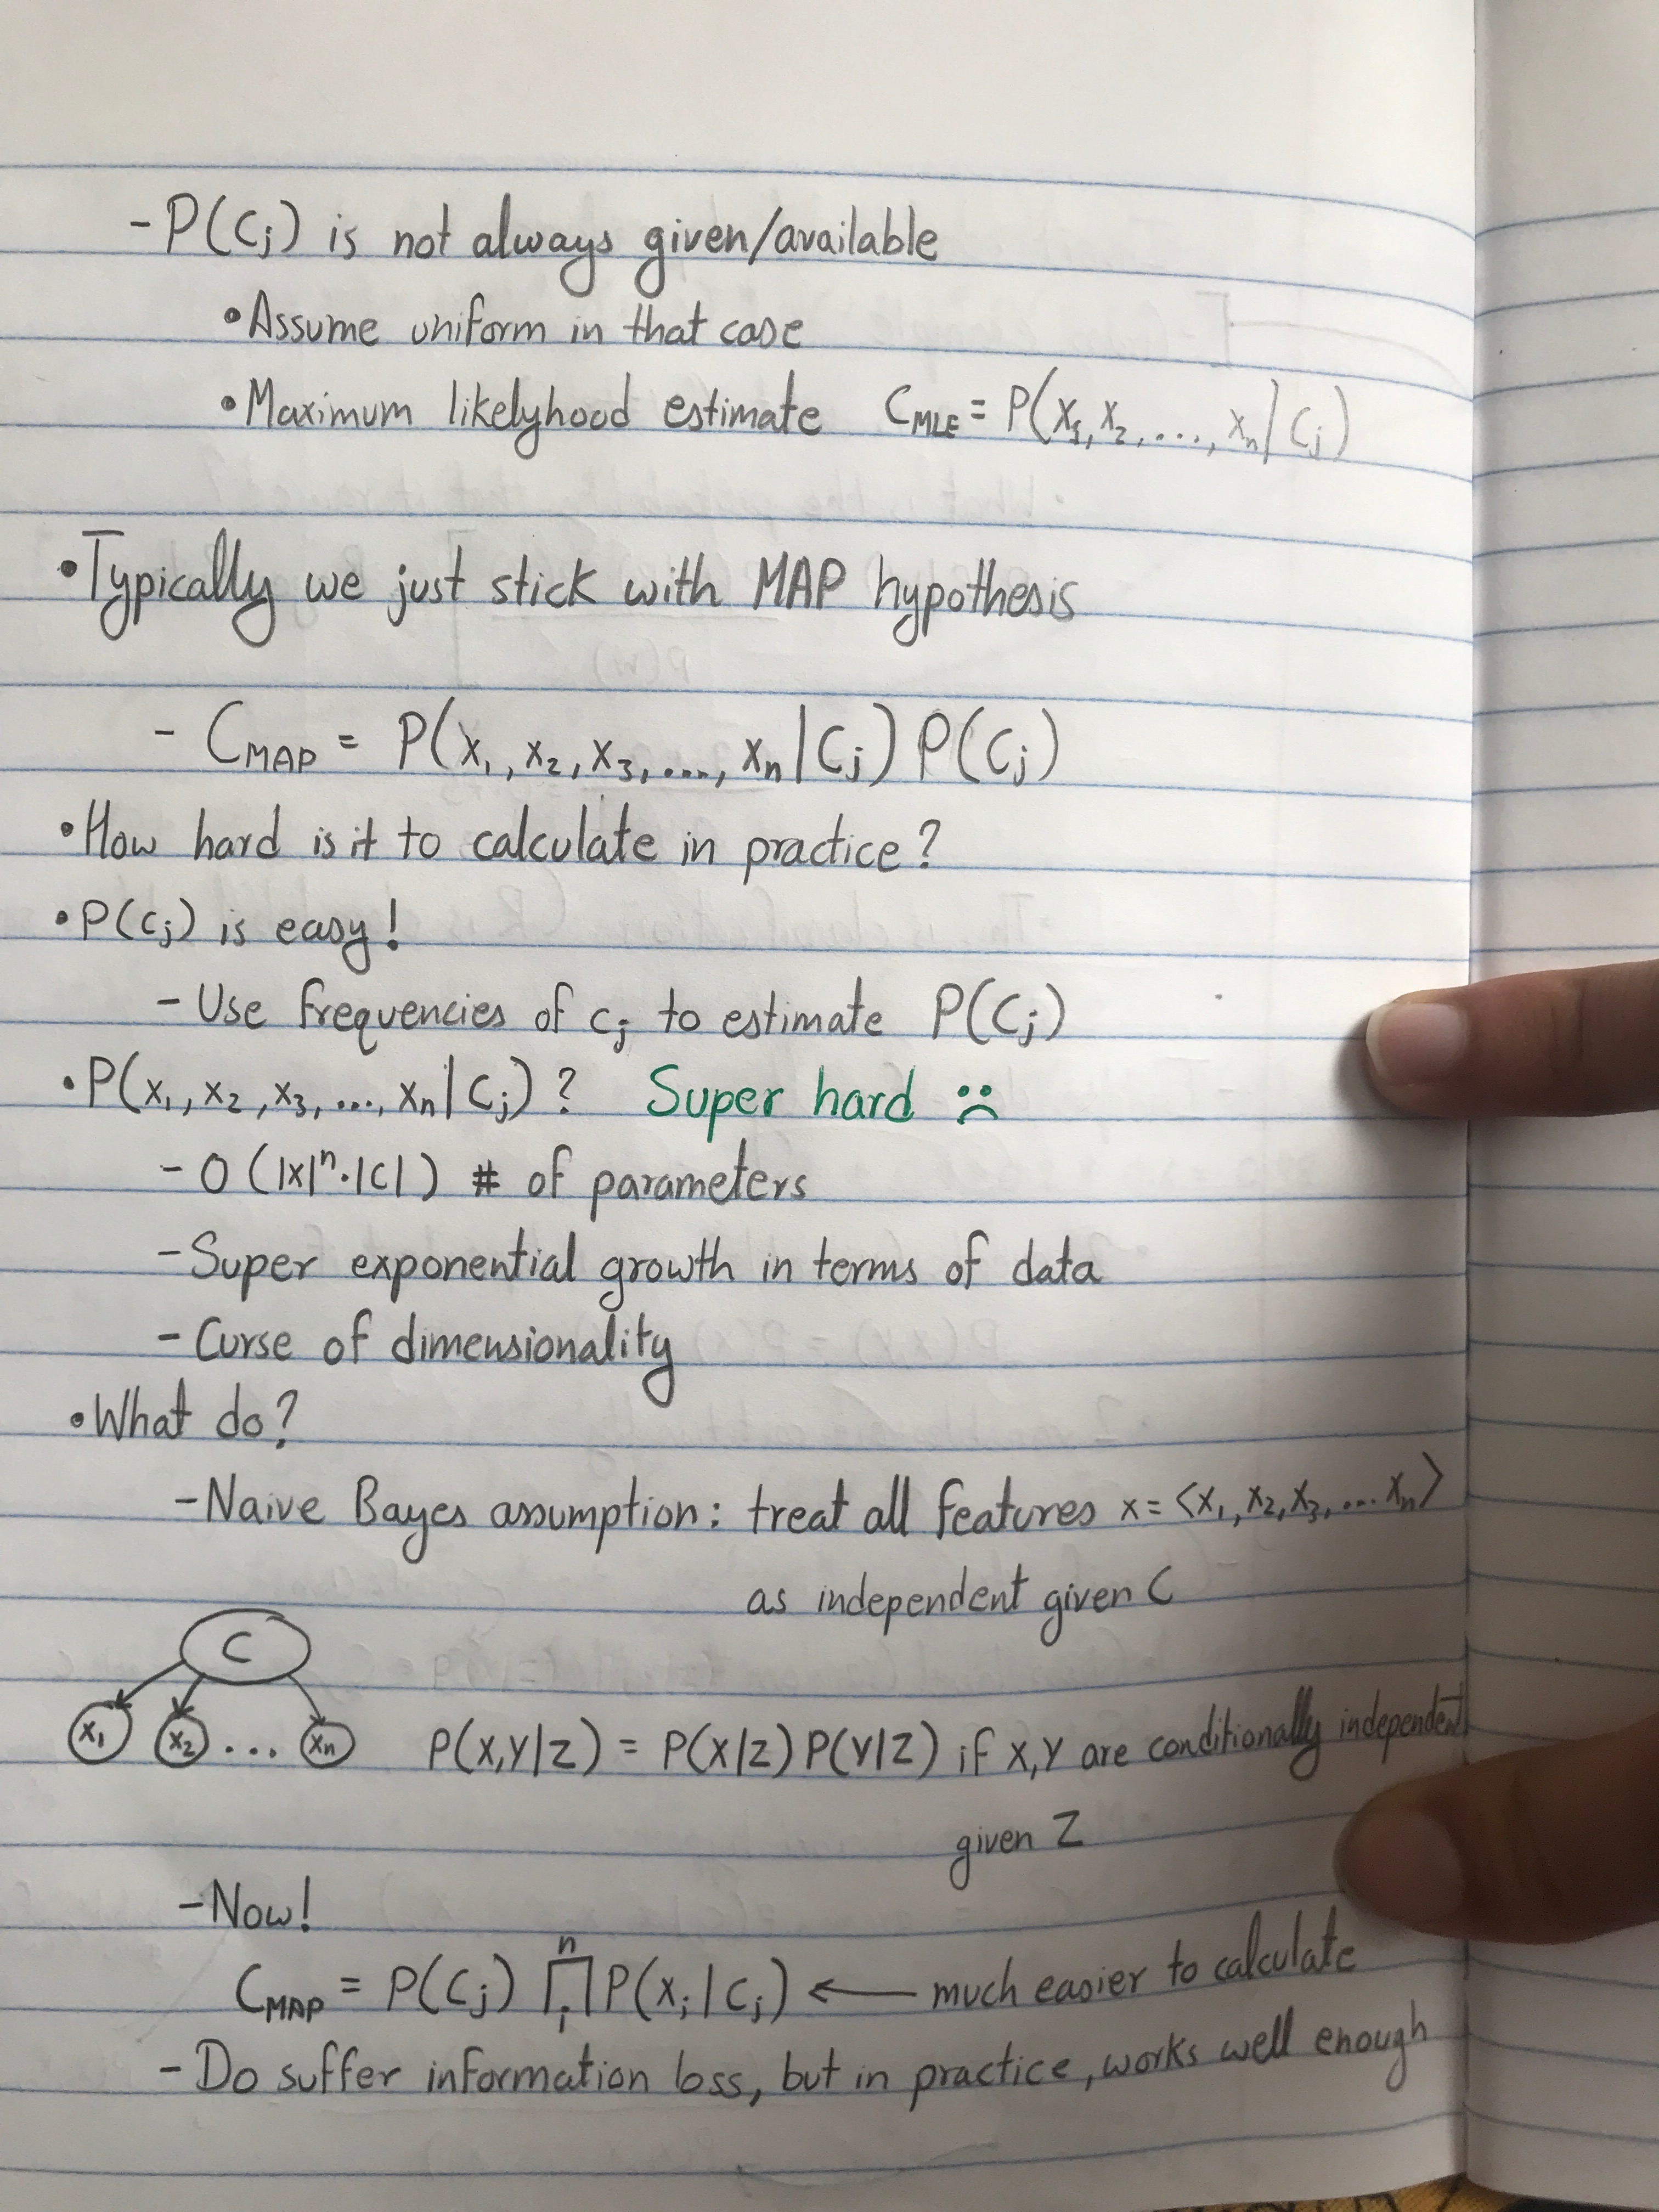 - P(Cj) is not always given/available
• Assume uniform in that case
• Maximum likelyhood estimate C_MLE = P(x₁, x₂, ..., xₙ | Cj)
• Typically we just stick with MAP hypothesis
- C_MAP = P(x₁, x₂, x₃, ..., xₙ | Cj) P(Cj)
• How hard is it to calculate in practice?
• P(cj) is easy!
- Use frequencies of cj to estimate P(Cj)
• P(x₁, x₂, x₃, ..., xₙ | Cj) ? Super hard :(
- O(|x|ⁿ·|C|) # of parameters
- Super exponential growth in terms of data
- Curse of dimensionality
• What do?
- Naive Bayes assumption: treat all features x = <x₁, x₂, x₃, ... xₙ>
as independent given C
C
x₁ x₂ ... xₙ P(x,y|z) = P(x|z) P(y|z) if x,y are conditionally independent
given Z
- Now!
C_MAP = P(Cj) ∏ᵢⁿ P(xᵢ | Cj) ← much easier to calculate
- Do suffer information loss, but in practice, works well enough